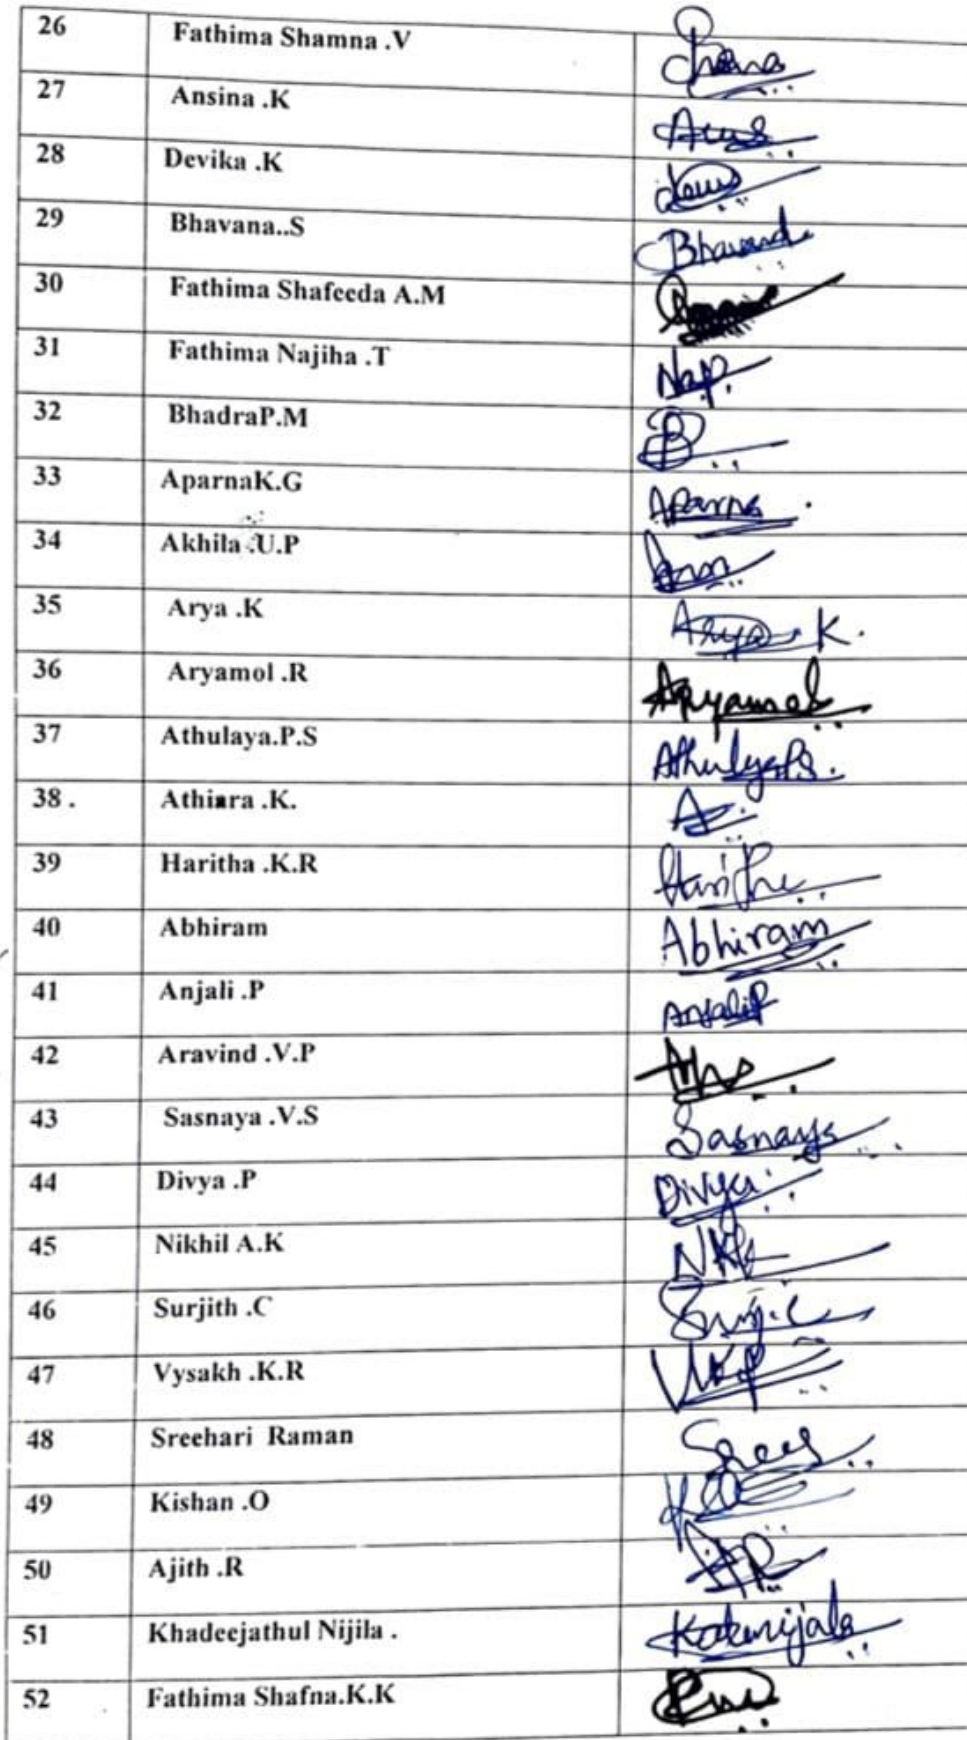 26 Fathima Shamna .V
27 Ansina .K
28 Devika .K
29 Bhavana..S Bhavana
30 Fathima Shafeeda A.M
31 Fathima Najiha .T
32 BhadraP.M B
33 AparnaK.G Aparna
34 Akhila .U.P
35 Arya .K Arya K.
36 Aryamol .R Aryamol
37 Athulaya.P.S Athulya P.S.
38 . Athiara .K.
39 Haritha .K.R Haritha
40 Abhiram Abhiram
41 Anjali .P Anjali P
42 Aravind .V.P
43 Sasnaya .V.S Sasnaya
44 Divya .P Divya
45 Nikhil A.K
46 Surjith .C
47 Vysakh .K.R
48 Sreehari Raman
49 Kishan .O
50 Ajith .R
51 Khadeejathul Nijila .
52 Fathima Shafna.K.K